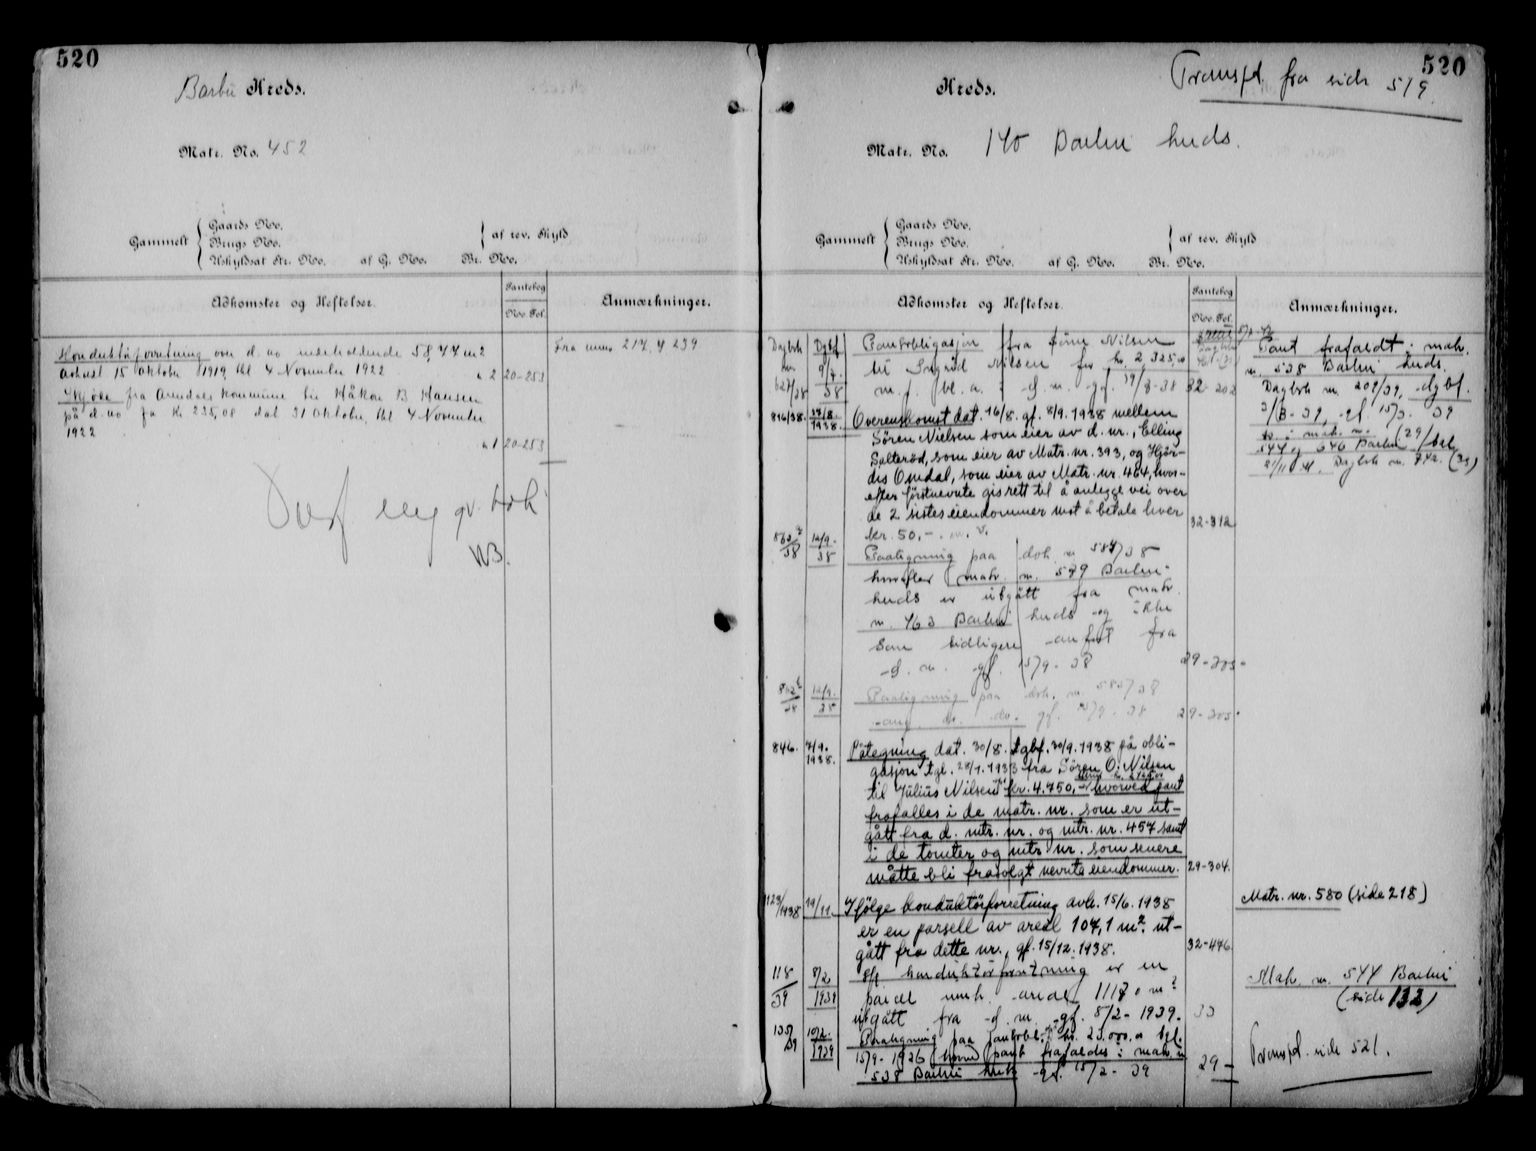 520
Barbu Kreds.
Matr. No. 452
Gammelt
Gaards No.
Brugs No.
Uskyldsat Str. No. af G. No. Br. No.
af rev. Skyld
Adkomster og Heftelser.
Pantebog
No. Fol.
Anmærkninger.
Konduktørforretning over d. no indeholdende 58,44 m2
avholdt 15 Oktober 1919 tgl 4 November 1922
n 2 20-253
Fra mno 217, 4 239
Skjøde fra Arendals Kommune til Håkon B Hansen
på d. no for kr 235,08 dat 31 Oktober, tgl 4 November
1922
n 1 20-253
NB.
520
Kreds.
Transpt. fra side 519.
Matr. No. 140 Barbu kreds.
Gammelt
Gaards No.
Brugs No.
Uskyldsat Str. No. af G. No. Br. No.
af rev. Skyld
Adkomster og Heftelser.
Pantebog
No. Fol.
Anmærkninger.
Dagbok
nr
627/38
Dgbf
9/7.
38
Pantobligasjon fra Søren Nilsen
til Nilsen for kr. 2,325,00
m. f. bl. a. i d. nr. gf. 19/8-38
32-202
Pant frafaldt i matr.
nr. 538 Barbu kreds.
Dagbok nr. 209/39, dgbf.
3/3-39, gf. 15/3. 39
do. i matr. nr.
544 og 646 Barbu
21/11 Dagbok nr. 742. (39)
816/38.
27/8.
1938.
Overenskomst dat. 16/8. gf. 8/9. 1938 mellem
Søren Nielsen som eier av d. nr., Elling
Salterød, som eier av Matr. nr. 393, og Hjør-
dis Omdal, som eier av Matr. nr. 464, hvor-
efter førstnevnte gis rett til å anlegge vei over
de 2 sistes eiendommer mot å betale hver
kr. 50,-. m. v.
32-312
862/38
12/9.
38
Paategning paa dok. nr. 584/38
hvorefter matr. nr. 579 Barbu
kreds er utgått fra matr.
nr. 463 Barbu kreds og ikke
som tidligere anført fra
d. nr. gf. 15/9-38
29-305
862/38
12/9.
38
Paategning paa dok. nr. 585/38
ang. do. do. gf. 15/9-38
29-305
846.
7/9.
1938.
Påtegning dat. 30/8. tgbf. 30/9. 1938 på obli-
gasjon tgl. 28/7. 1933 fra Søren O. Nilsen
til Julius Nilsen kr. 4.750,- hvorved pant
frafalles i de matr. nr. som er ut-
gått fra d. mtr. nr. og mtr. nr. 457 samt
i de tomter og mtr. nr. som senere
måtte bli frasolgt nevnte eiendommer.
29-304
1123/1938
19/11.
Ifølge konduktørforretning avh. 15/6. 1938
er en parsell av areal 104,1 m². ut-
gått fra dette nr., gf. 15/12. 1938.
32-446
Matr. nr. 580 (side 218)
118
39
8/2
1939
Ift konduktørforretning er en
parcel areal m²
utgått fra d. nr. gf. 8/2-1939.
33
Matr. nr. 544 Barbu
(side 132)
135/39
10/2.
1939
Paategning paa pantobl. kr. 23.000.00 tgl.
15/9-1926 hvorved pant frafaldes i matr. nr
538 Barbu kreds gf. 15/2-39
29-
Transpt. side 521.